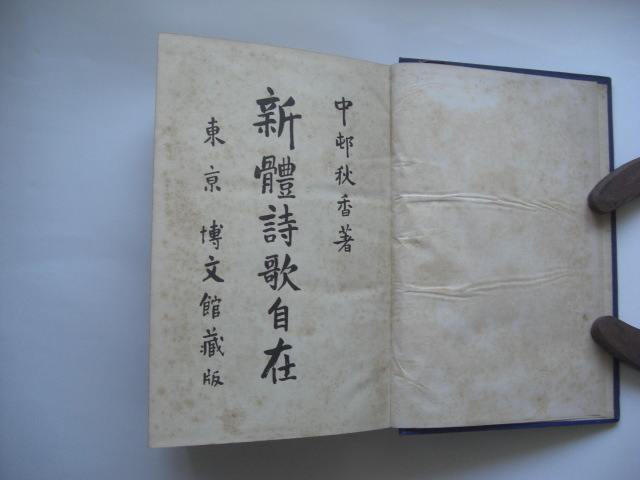 中邨秋香著
新體詩歌自在
東京 博文館藏版